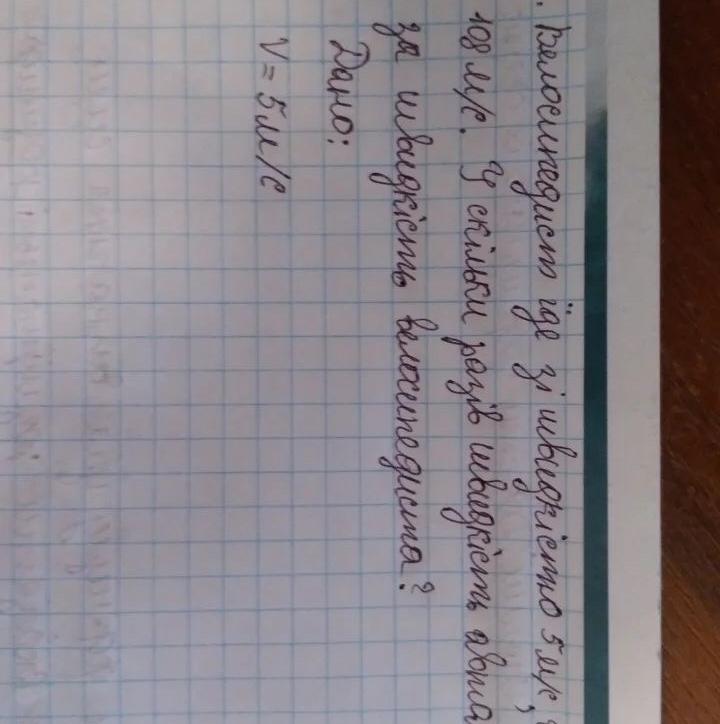 . Велосипедист їде зі швидкістю 5м/с,
108 м/с. У скільки разів швидкість авто
за швидкість велосипедиста?
Дано:
V = 5м/с